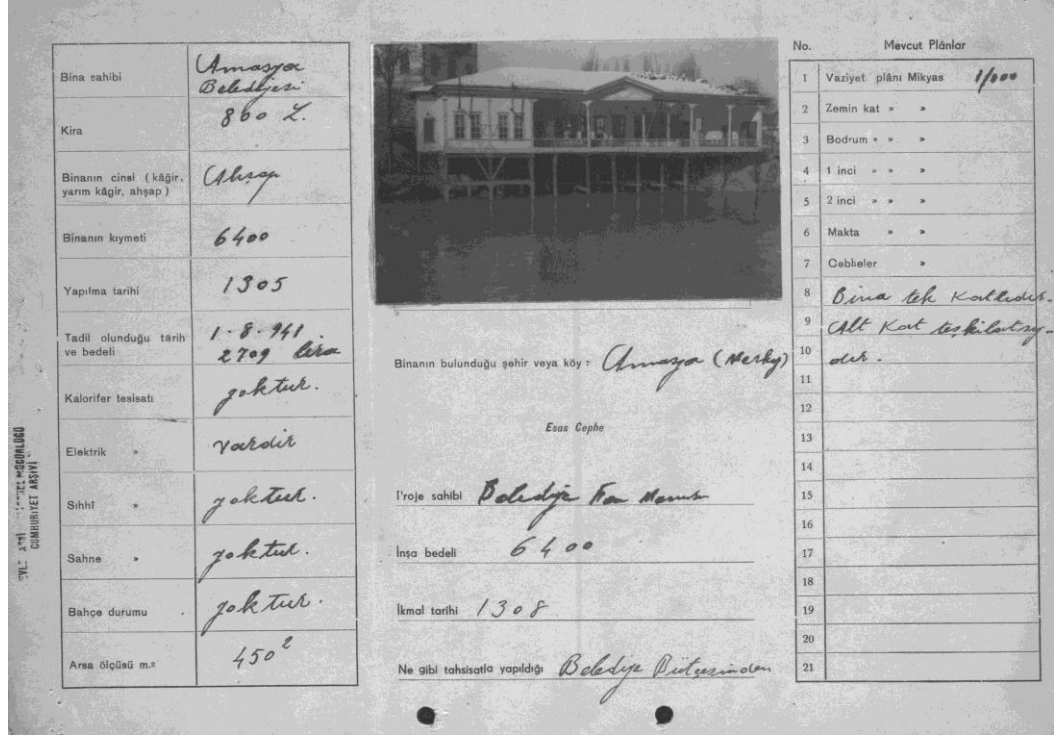 Bina sahibi Amasya
Belediyesi
Kira 860 L.
Binanın cinsi (kâğir,
yarım kâgir, ahşap) Ahşap
Binanın kıymeti 6400
Yapılma tarihi 1305
Tadil olunduğu tarih 1-8-941
ve bedeli 2709 lira
Kalorifer tesisatı yoktur.
Elektrik » vardır
Sıhhî » yoktur.
Sahne » yoktur.
Bahçe durumu yoktur.
Arsa ölçüsü m.² 450²
CUMHURİYET ARŞİVİ
Binanın bulunduğu şehir veya köy : Amasya (Merkez)
Esas Cephe
Proje sahibi Belediye Fen
İnşa bedeli 6400
İkmal tarihi 1308
Ne gibi tahsisatla yapıldığı Belediye Bütçesinden
No. Mevcut Plânlar
1 Vaziyet plânı Mikyas 1/000
2 Zemin kat » »
3 Bodrum » » »
4 1 inci » » »
5 2 inci » » »
6 Makta » »
7 Cebheler »
8 Bina tek Katlıdır.
9 Alt Kat teşkilatsız-
10 dır.
11
12
13
14
15
16
17
18
19
20
21